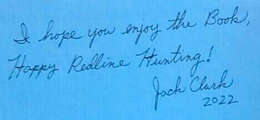 I hope you enjoy the Book,
Happy Redline Hunting!
Jack Clark
2022